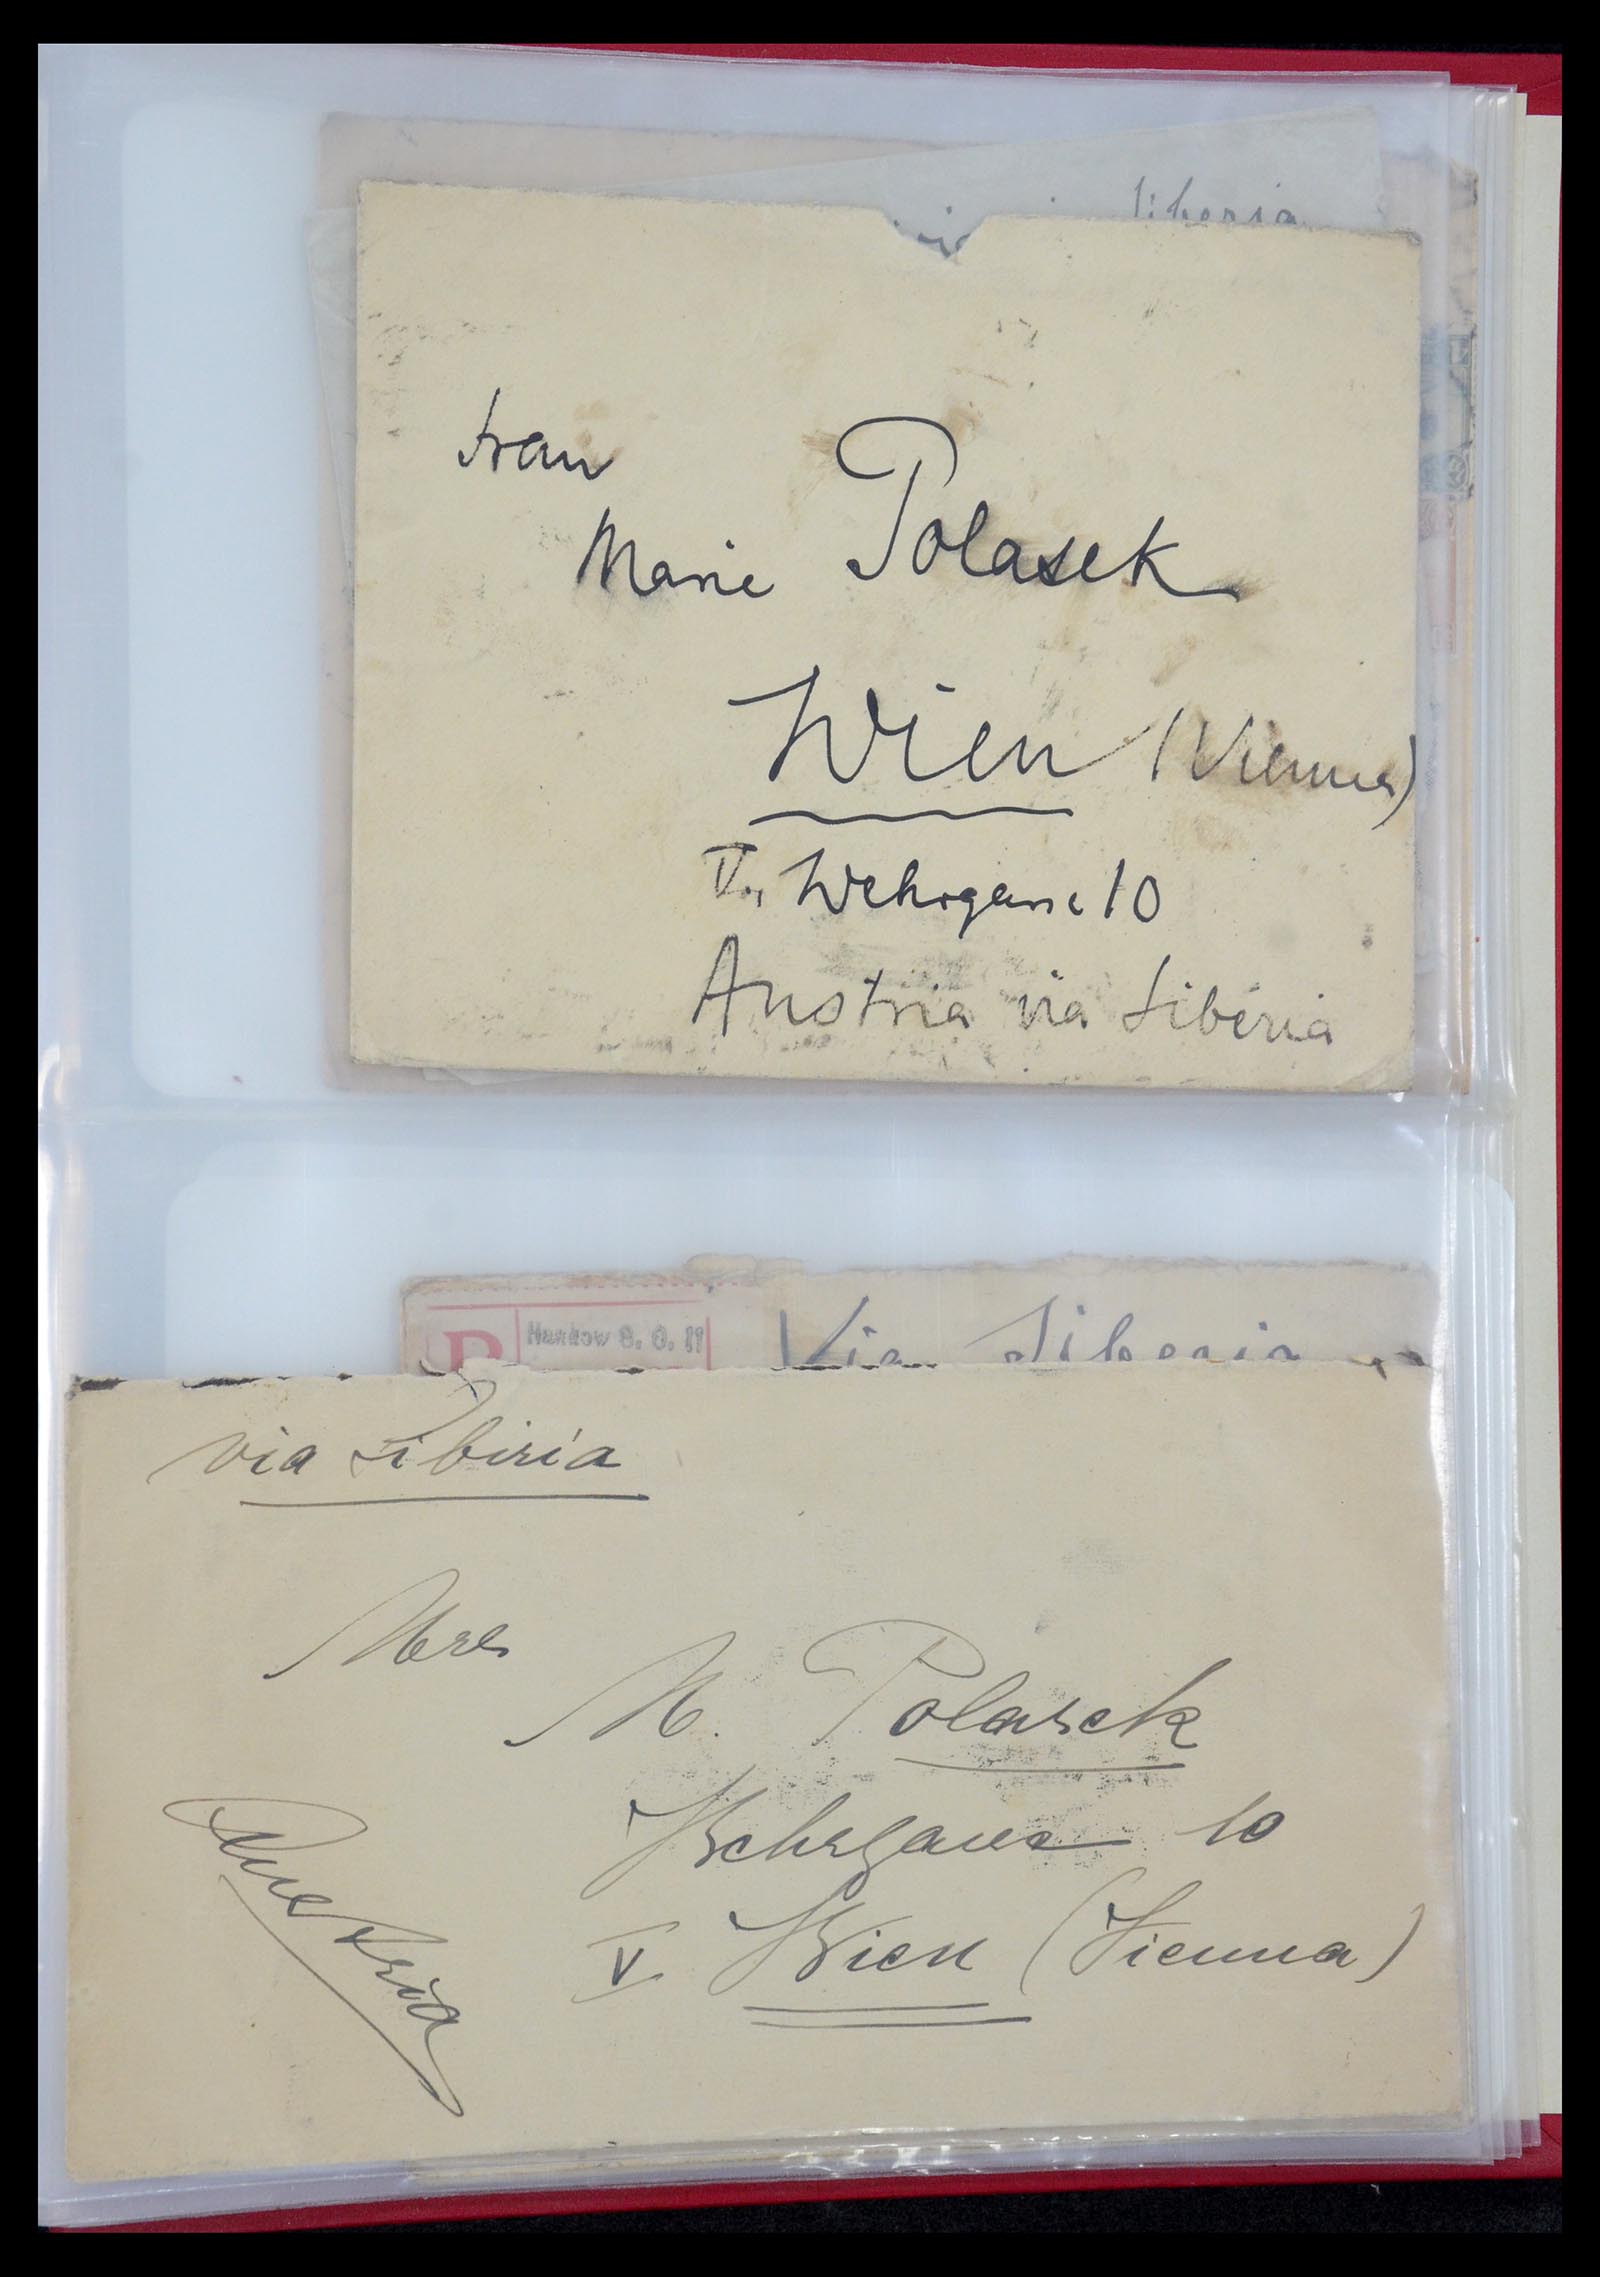 Siberia
Frau
Marie Polasek
Wien (Vienna)
V., Wehrgasse 10
Austria via Sibéria
R
Hankow
Via Siberia
via Sibiria
Mrs
M. Polasek
Wehrgasse 10
V. Wien (Vienna)
Austria